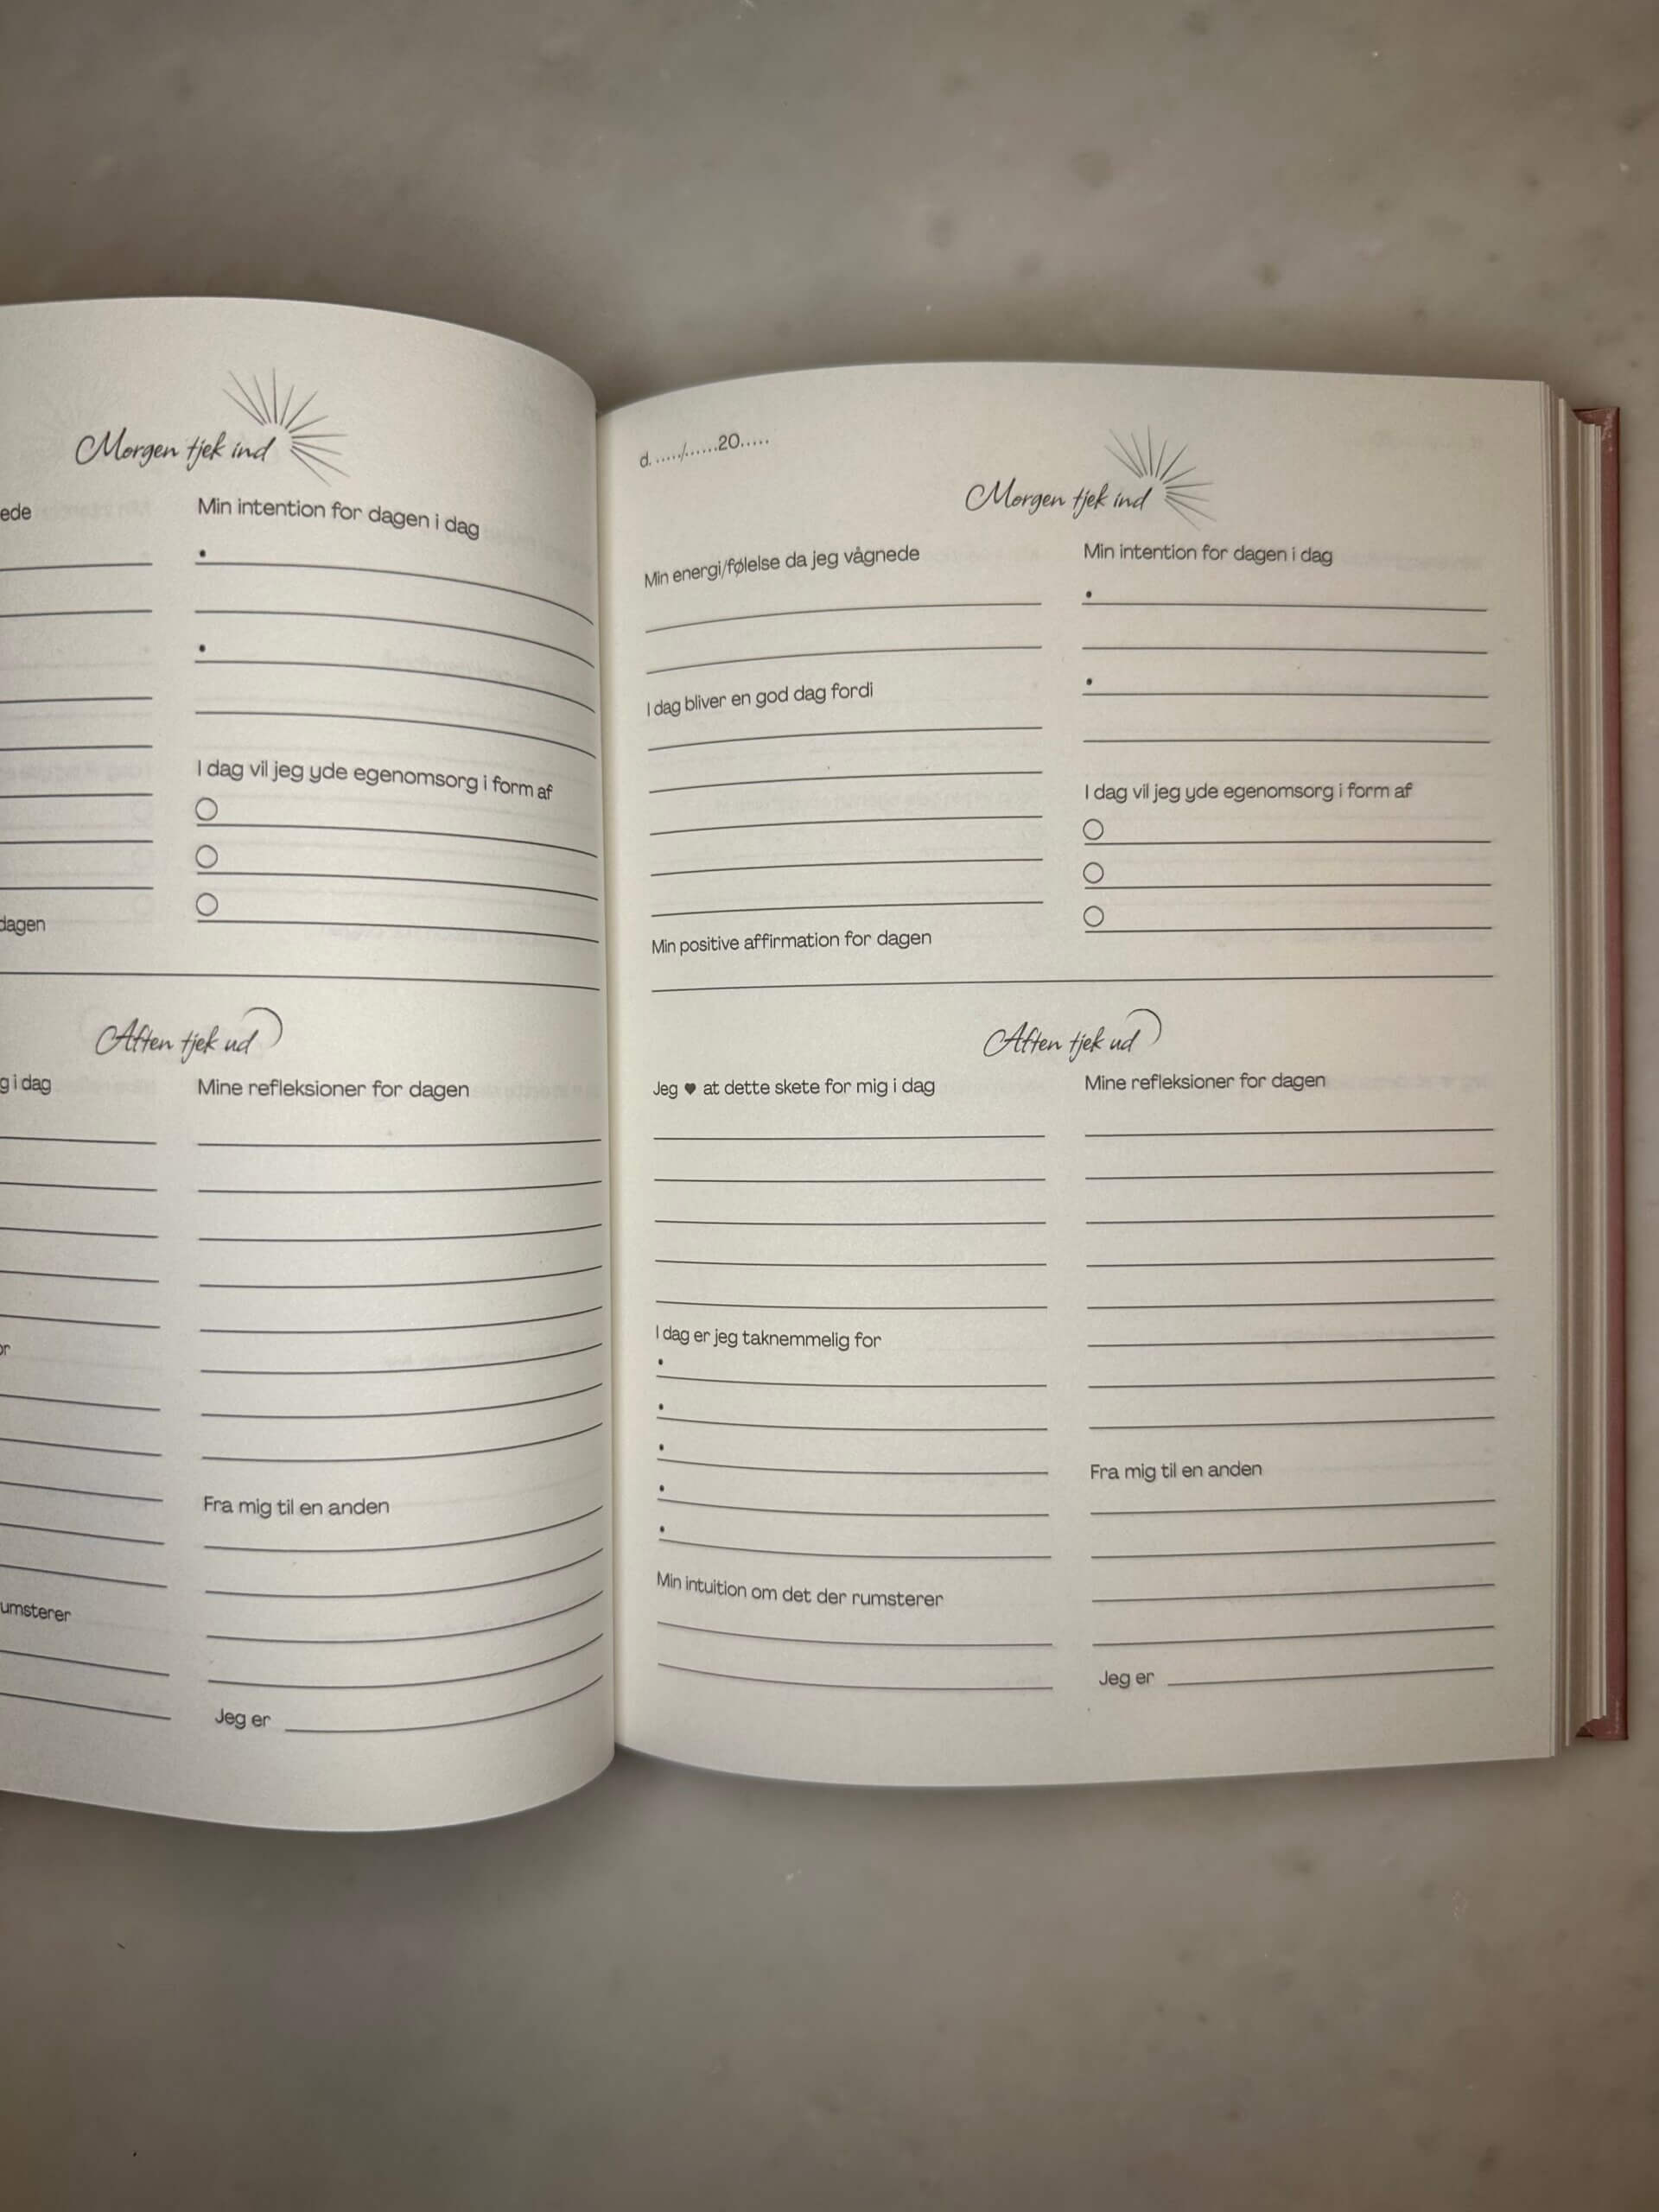 Morgen tjek ind
ede
Min intention for dagen i dag
•
•
I dag vil jeg yde egenomsorg i form af
dagen
Aften tjek ud
g i dag
Mine refleksioner for dagen
or
Fra mig til en anden
umsterer
Jeg er
d. ...../......20.....
Morgen tjek ind
Min energi/følelse da jeg vågnede
I dag bliver en god dag fordi
Min intention for dagen i dag
•
•
I dag vil jeg yde egenomsorg i form af
Min positive affirmation for dagen
Aften tjek ud
Jeg ♥ at dette skete for mig i dag
I dag er jeg taknemmelig for
•
•
•
•
•
Min intuition om det der rumsterer
Mine refleksioner for dagen
Fra mig til en anden
Jeg er